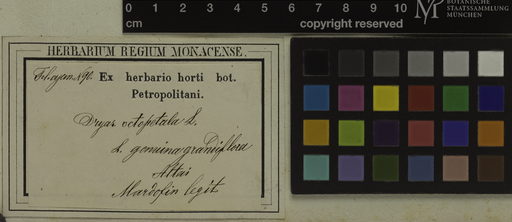 0 1 2 3 4 5 6 7 8 9 10
cm copyright reserved
BOTANISCHE
STAATSSAMMLUNG
MÜNCHEN
HERBARIUM REGIUM MONACENSE.
Ex herbario horti bot.
Petropolitani.
Dryas octopetala L.
genuina grandiflora
Altai
legit